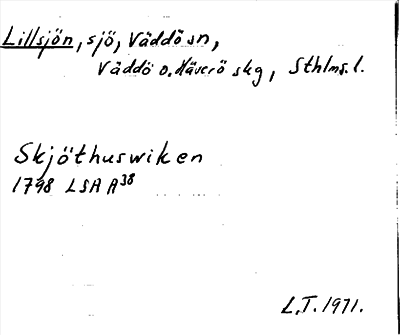 Lillsjön, sjö, Väddö sn,
Väddö o. Häverö skg, Sthlms. l.
Skjöthuswiken
1798 LSA A38
L.T. 1971.